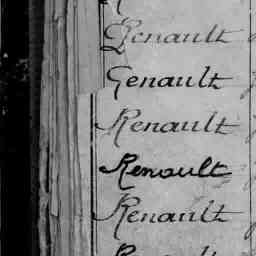 Renault
Genault
Renault
Renault
Renault